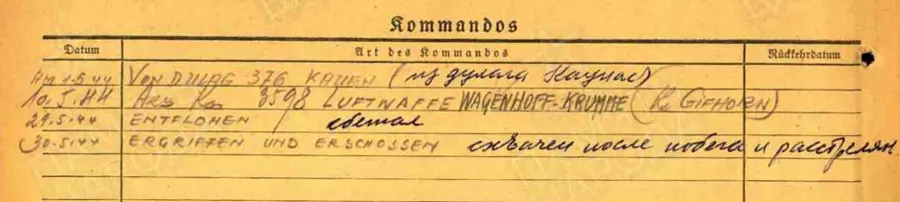 Kommandos
Datum Art des Kommandos Rückkehrdatum
Am 1.5.44 VON DULAG 376 KAUEN (из дулага Каунас)
10.5.44 3598 LUFTWAFFE WAGENHOFF-KRUMME (Kr. GIFHORN)
29.5.44 ENTFLOHEN сбежал
30.5.44 ERGRIFFEN UND ERSCHOSSEN схвачен после побега и расстрелян.